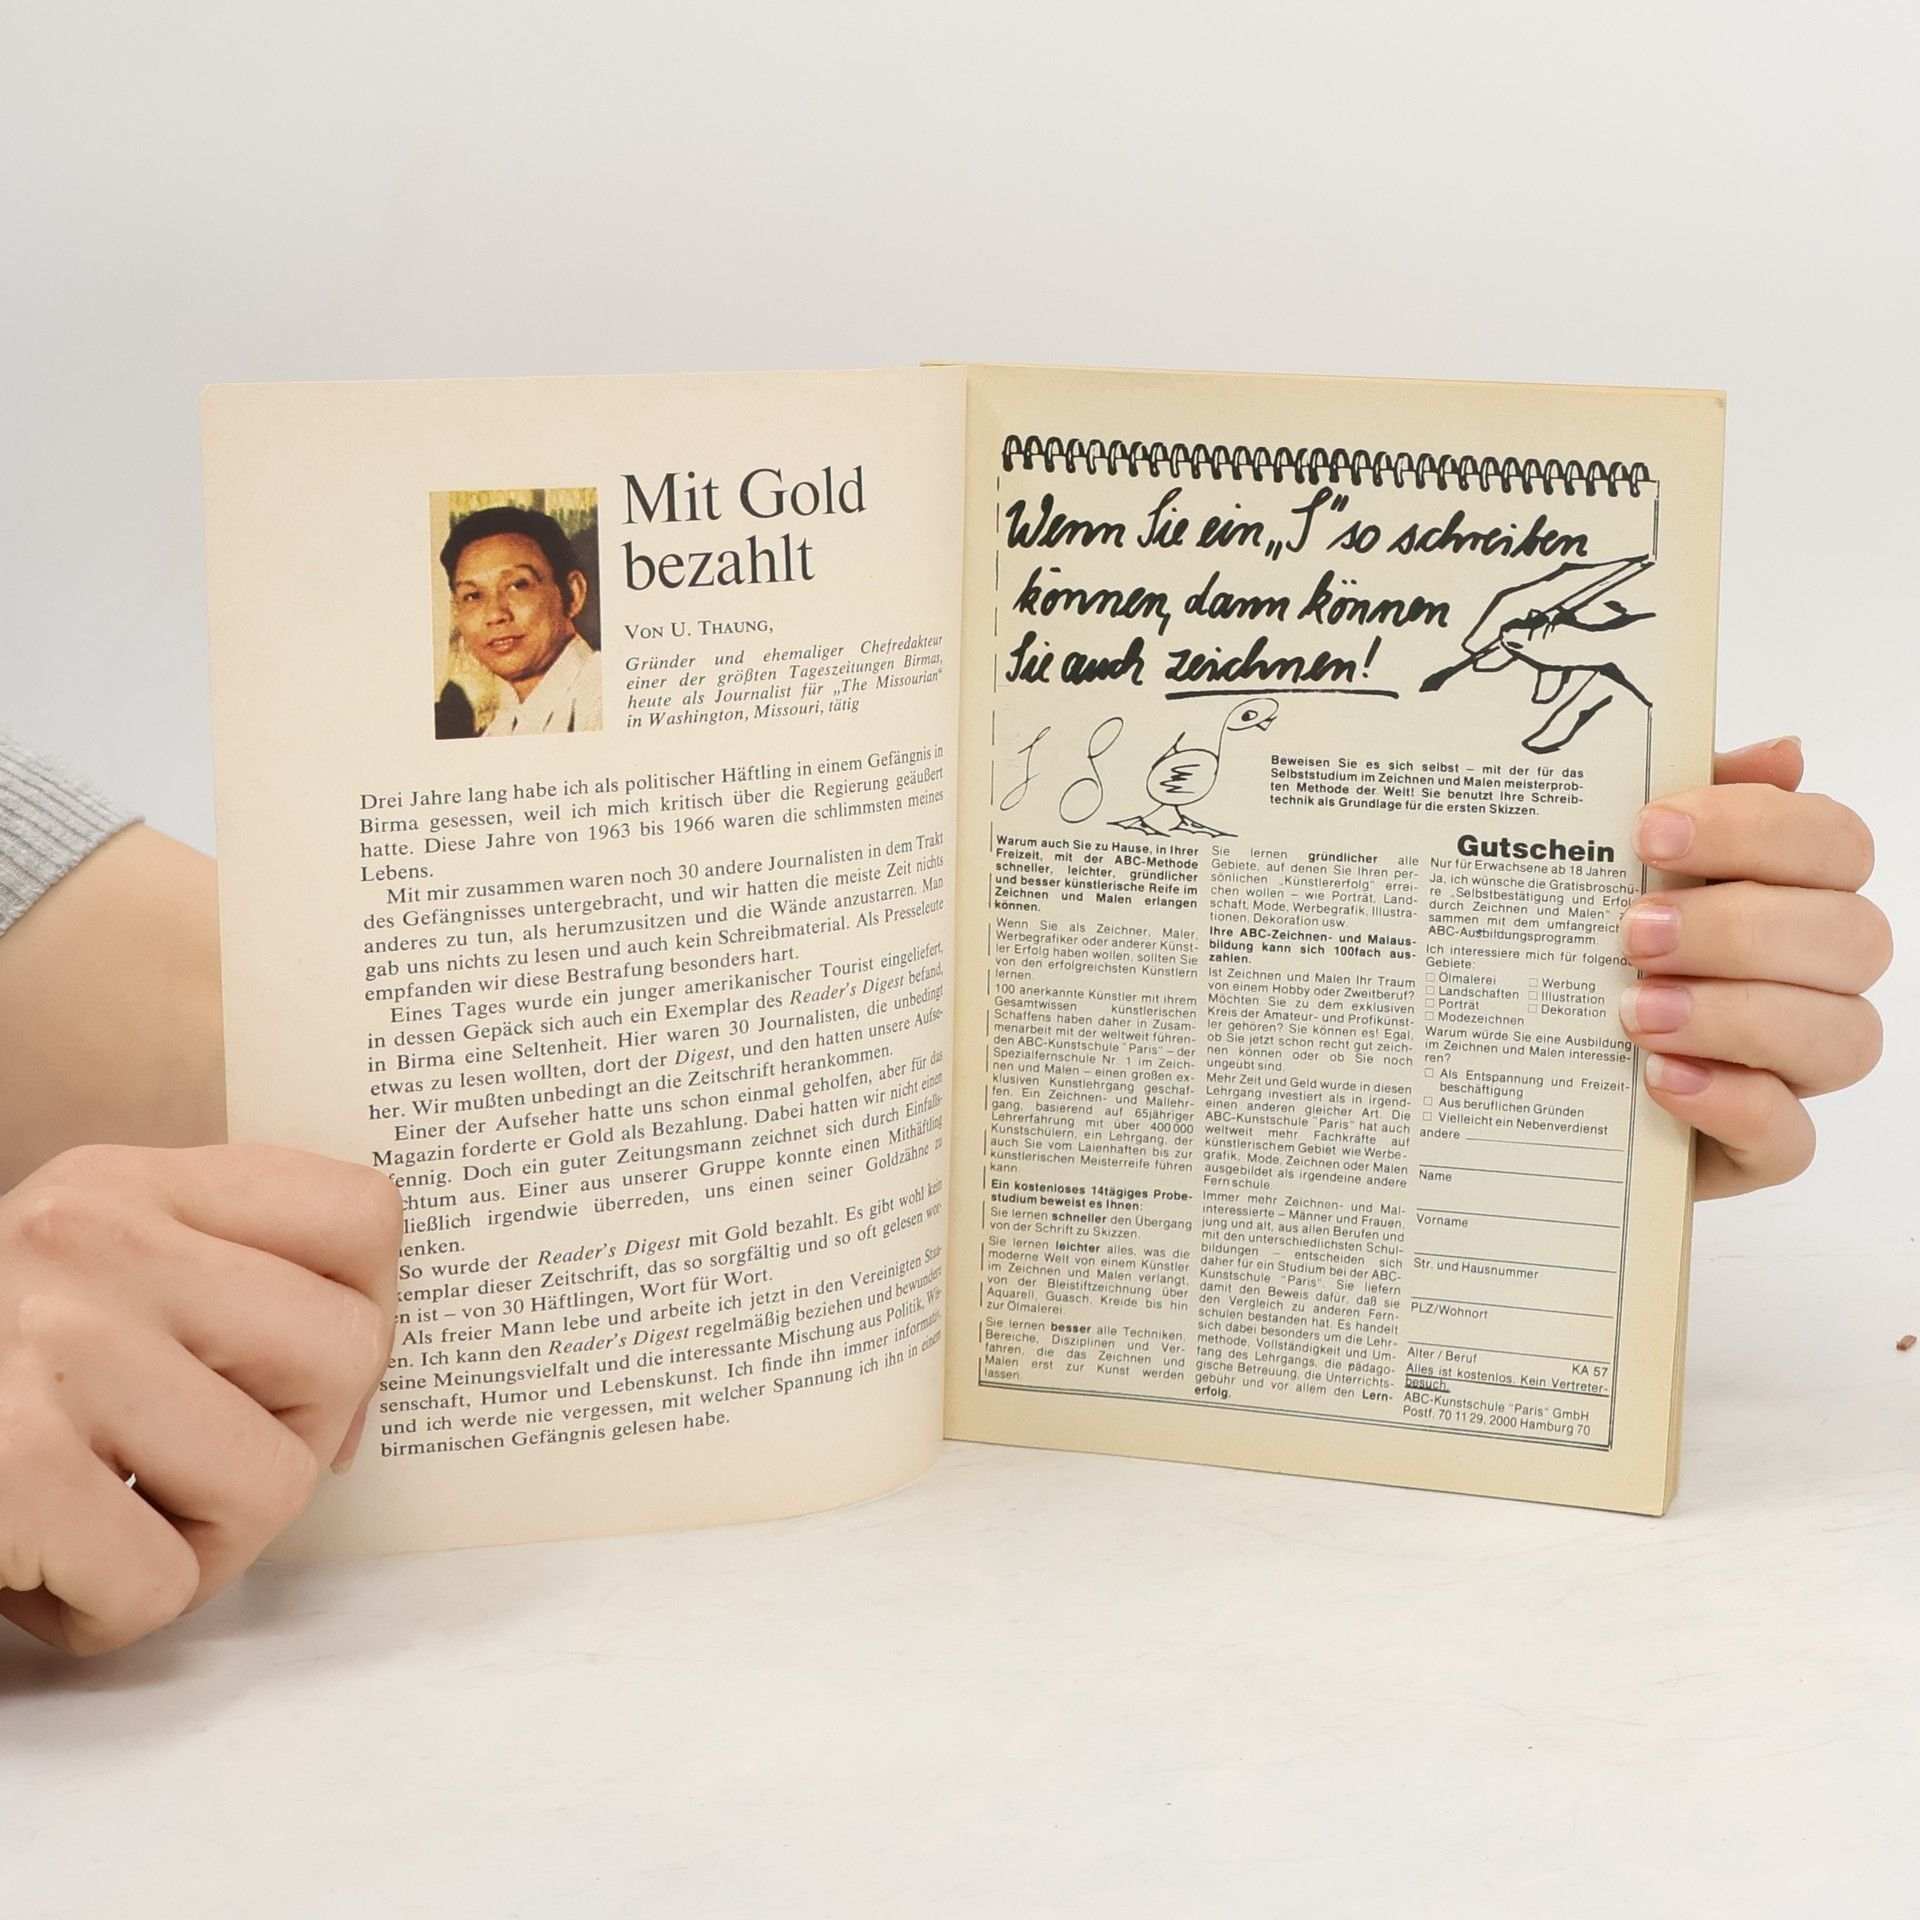 Mit Gold
bezahlt
VON U. THAUNG,
Gründer und ehemaliger Chefredakteur
einer der größten Tageszeitungen Birmas,
heute als Journalist für „The Missourian“
in Washington, Missouri, tätig
Drei Jahre lang habe ich als politischer Häftling in einem Gefängnis in
Birma gesessen, weil ich mich kritisch über die Regierung geäußert
hatte. Diese Jahre von 1963 bis 1966 waren die schlimmsten meines
Lebens.
Mit mir zusammen waren noch 30 andere Journalisten in dem Trakt
des Gefängnisses untergebracht, und wir hatten die meiste Zeit nichts
anderes zu tun, als herumzusitzen und die Wände anzustarren. Man
gab uns nichts zu lesen und auch kein Schreibmaterial. Als Presseleute
empfanden wir diese Bestrafung besonders hart.
Eines Tages wurde ein junger amerikanischer Tourist eingeliefert,
in dessen Gepäck sich auch ein Exemplar des Reader's Digest befand,
in Birma eine Seltenheit. Hier waren 30 Journalisten, die unbedingt
etwas zu lesen wollten, dort der Digest, und den hatten unsere Aufse-
her. Wir mußten unbedingt an die Zeitschrift herankommen.
Einer der Aufseher hatte uns schon einmal geholfen, aber für das
Magazin forderte er Gold als Bezahlung. Dabei hatten wir nicht einen
fennig. Doch ein guter Zeitungsmann zeichnet sich durch Einfalls-
chtum aus. Einer aus unserer Gruppe konnte einen Mithäftling
ließlich irgendwie überreden, uns einen seiner Goldzähne zu
enken.
So wurde der Reader's Digest mit Gold bezahlt. Es gibt wohl kein
emplar dieser Zeitschrift, das so sorgfältig und so oft gelesen wor-
n ist – von 30 Häftlingen, Wort für Wort.
Als freier Mann lebe und arbeite ich jetzt in den Vereinigten Staa-
en. Ich kann den Reader's Digest regelmäßig beziehen und bewundere
seine Meinungsvielfalt und die interessante Mischung aus Politik, Wis-
senschaft, Humor und Lebenskunst. Ich finde ihn immer informativ,
und ich werde nie vergessen, mit welcher Spannung ich ihn in einem
birmanischen Gefängnis gelesen habe.
Wenn Sie ein „S“ so schreiben
können, dann können
Sie auch zeichnen!
Beweisen Sie es sich selbst – mit der für das
Selbststudium im Zeichnen und Malen meisterprob-
ten Methode der Welt! Sie benutzt Ihre Schreib-
technik als Grundlage für die ersten Skizzen.
Warum auch Sie zu Hause, in Ihrer
Freizeit, mit der ABC-Methode
schneller, leichter, gründlicher
und besser künstlerische Reife im
Zeichnen und Malen erlangen
können.
Wenn Sie als Zeichner, Maler,
Werbegrafiker oder anderer Künst-
ler Erfolg haben wollen, sollten Sie
von den erfolgreichsten Künstlern
lernen.
100 anerkannte Künstler mit ihrem
Gesamtwissen künstlerischen
Schaffens haben daher in Zusam-
menarbeit mit der weltweit führen-
den ABC-Kunstschule "Paris" – der
Spezialfernschule Nr. 1 im Zeich-
nen und Malen – einen großen ex-
klusiven Kunstlehrgang geschaf-
fen. Ein Zeichnen- und Mallehr-
gang, basierend auf 65jähriger
Lehrerfahrung mit über 400 000
Kunstschülern, ein Lehrgang, der
auch Sie vom Laienhaften bis zur
künstlerischen Meisterreife führen
kann.
Ein kostenloses 14tägiges Probe-
studium beweist es Ihnen:
Sie lernen schneller den Übergang
von der Schrift zu Skizzen.
Sie lernen leichter alles, was die
moderne Welt von einem Künstler
im Zeichnen und Malen verlangt,
von der Bleistiftzeichnung über
Aquarell, Guasch, Kreide bis hin
zur Ölmalerei.
Sie lernen besser alle Techniken,
Bereiche, Disziplinen und Ver-
fahren, die das Zeichnen und
Malen erst zur Kunst werden
lassen.
Sie lernen gründlicher alle
Gebiete, auf denen Sie Ihren per-
sönlichen „Künstlererfolg“ errei-
chen wollen – wie Porträt, Land-
schaft, Mode, Werbegrafik, Illustra-
tionen, Dekoration usw.
Ihre ABC-Zeichnen- und Malaus-
bildung kann sich 100fach aus-
zahlen.
Ist Zeichnen und Malen Ihr Traum
von einem Hobby oder Zweitberuf?
Möchten Sie zu dem exklusiven
Kreis der Amateur- und Profikünst-
ler gehören? Sie können es! Egal,
ob Sie jetzt schon recht gut zeich-
nen können oder ob Sie noch
ungeübt sind.
Mehr Zeit und Geld wurde in diesen
Lehrgang investiert als in irgend-
einen anderen gleicher Art. Die
ABC-Kunstschule "Paris" hat auch
weltweit mehr Fachkräfte auf
künstlerischem Gebiet wie Werbe-
grafik, Mode, Zeichnen oder Malen
ausgebildet als irgendeine andere
Fernschule.
Immer mehr Zeichnen- und Mal-
interessierte – Männer und Frauen,
jung und alt, aus allen Berufen und
mit den unterschiedlichsten Schul-
bildungen – entscheiden sich
daher für ein Studium bei der ABC-
Kunstschule "Paris". Sie liefern
damit den Beweis dafür, daß sie
den Vergleich zu anderen Fern-
schulen bestanden hat. Es handelt
sich dabei besonders um die Lehr-
methode, Vollständigkeit und Um-
fang des Lehrgangs, die pädago-
gische Betreuung, die Unterrichts-
gebühr und vor allem den Lern-
erfolg.
Gutschein
Nur für Erwachsene ab 18 Jahren
Ja, ich wünsche die Gratisbroschü-
re „Selbstbestätigung und Erfol
durch Zeichnen und Malen“ z
sammen mit dem umfangreich
ABC-Ausbildungsprogramm.
Ich interessiere mich für folgende
Gebiete:
□ Ölmalerei □ Werbung
□ Landschaften □ Illustration
□ Porträt □ Dekoration
□ Modezeichnen
Warum würde Sie eine Ausbildung
im Zeichnen und Malen interessie-
ren?
□ Als Entspannung und Freizeit-
beschäftigung
□ Aus beruflichen Gründen
□ Vielleicht ein Nebenverdienst
andere
Name
Vorname
Str. und Hausnummer
PLZ/Wohnort
Alter / Beruf KA 57
Alles ist kostenlos. Kein Vertreter-
besuch.
ABC-Kunstschule "Paris" GmbH
Postf. 70 11 29, 2000 Hamburg 70